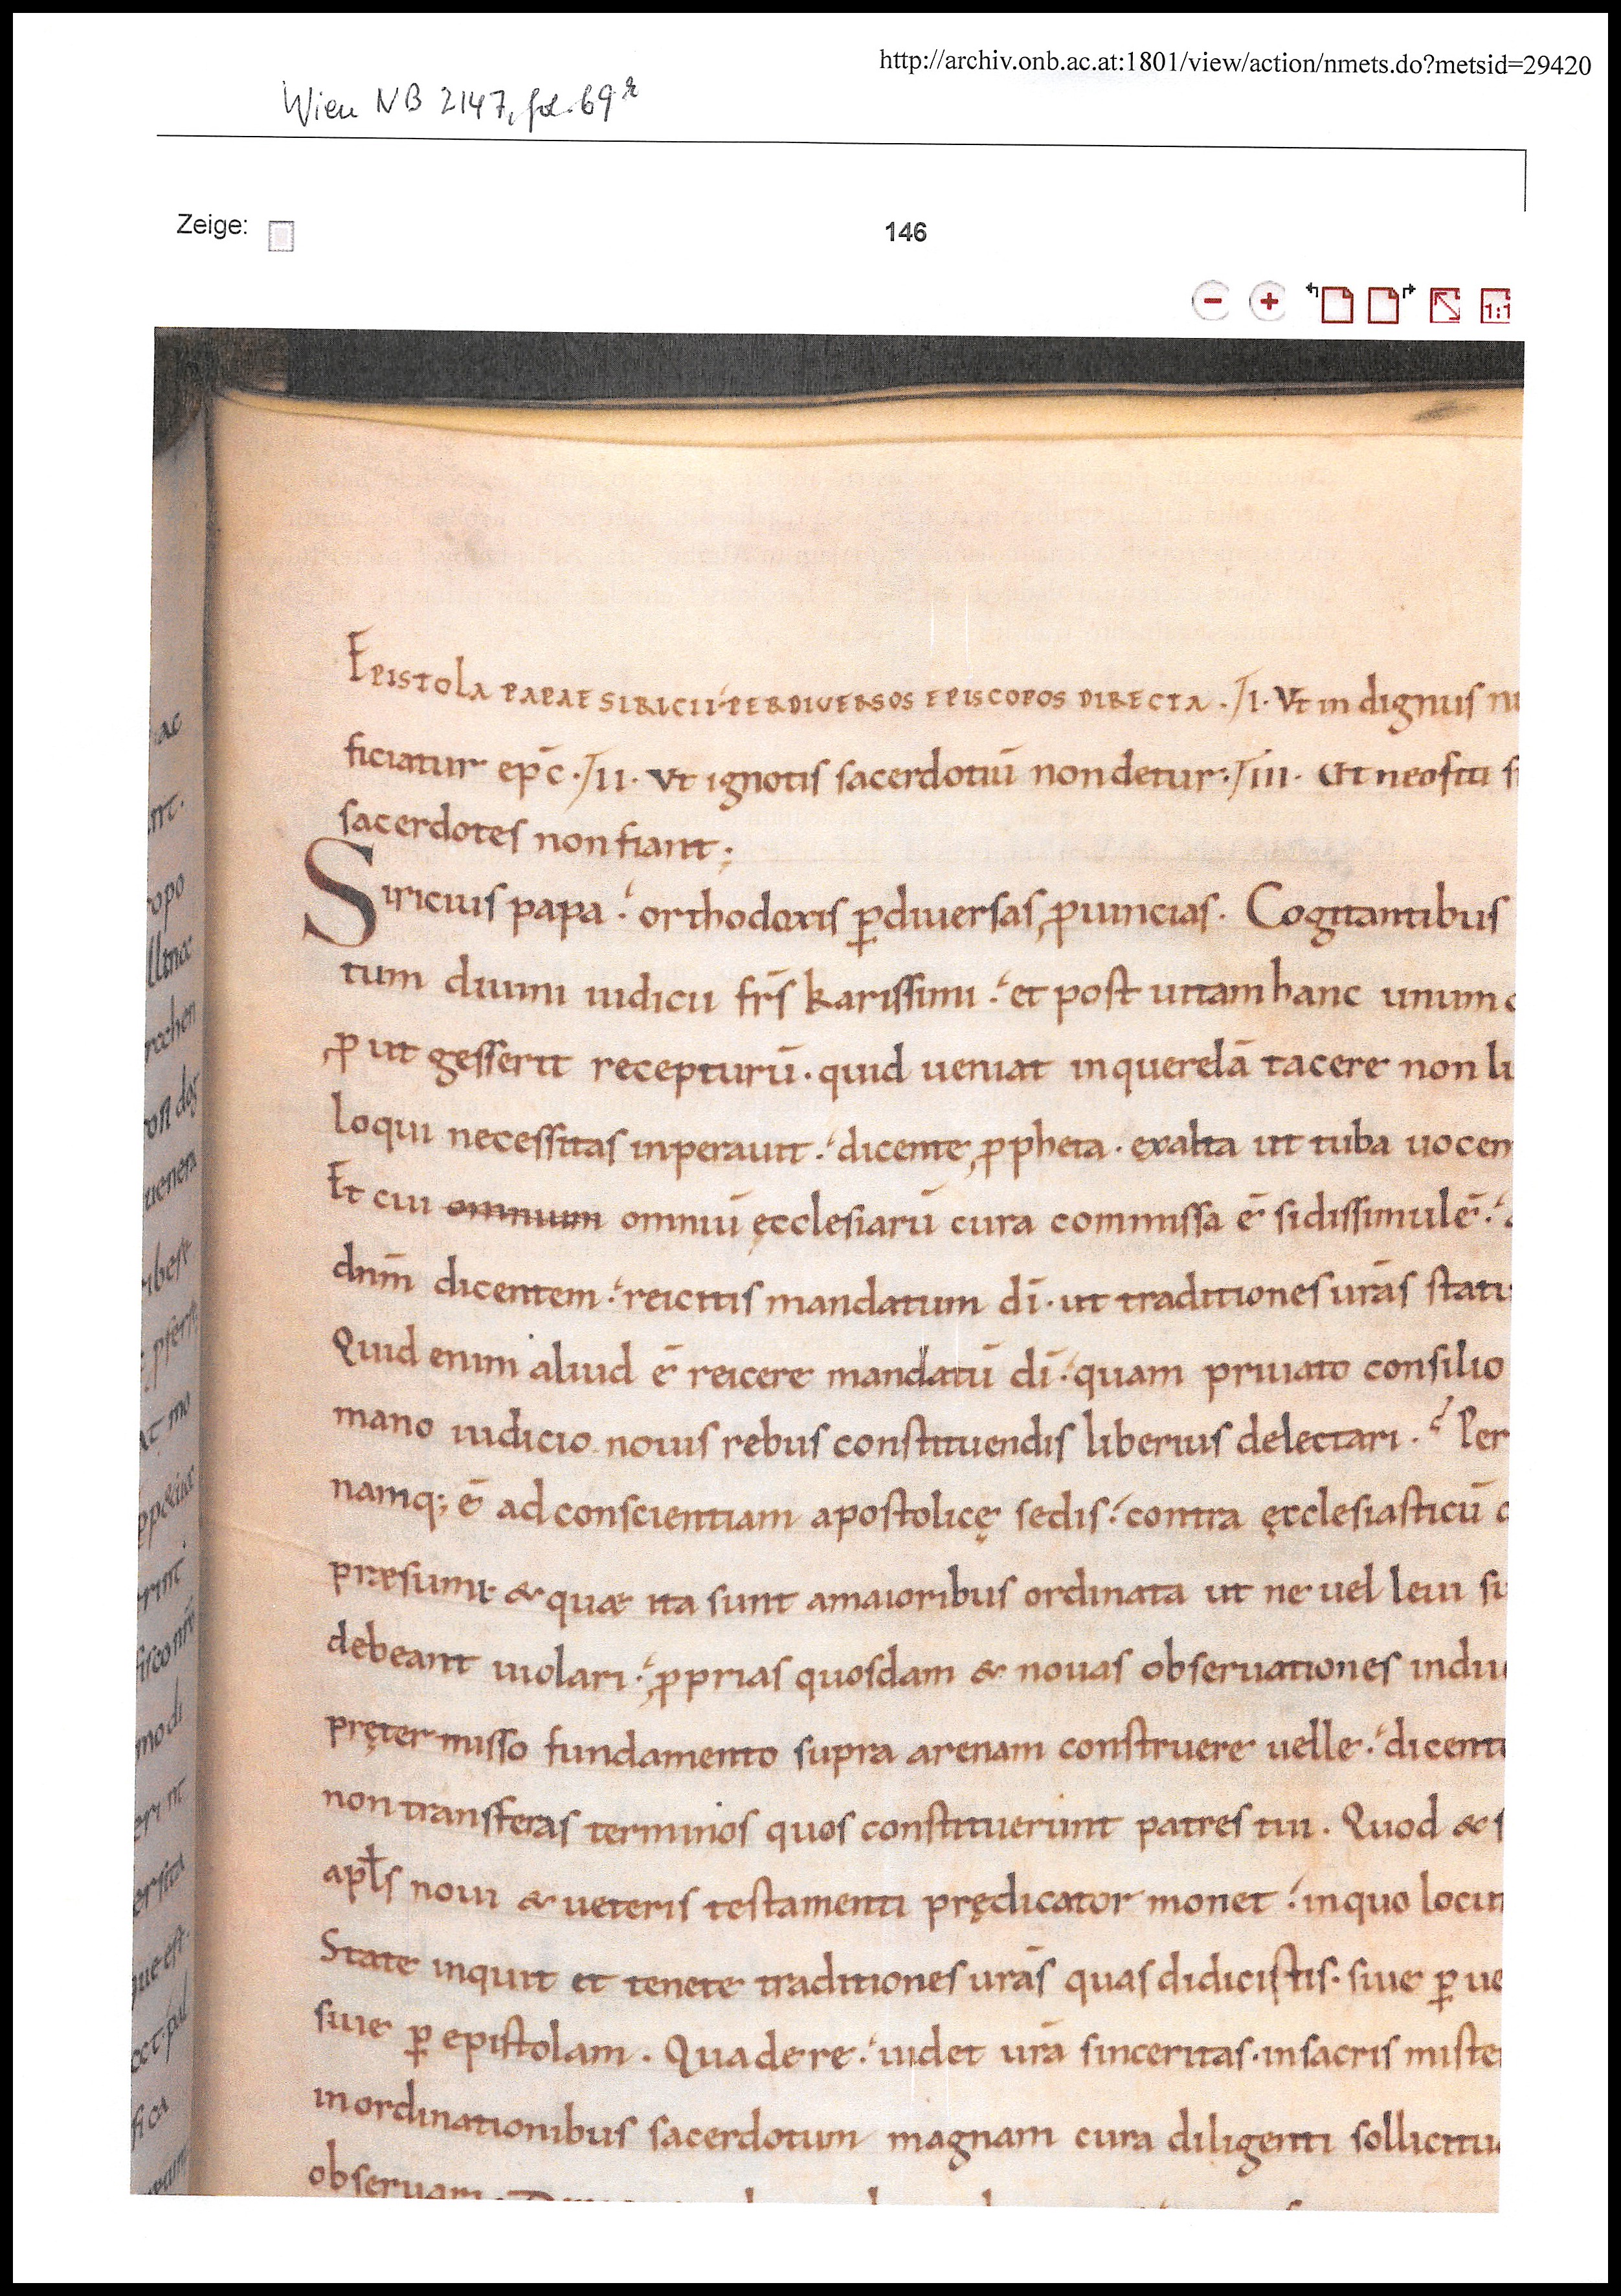 http://archiv.onb.ac.at:1801/view/action/nmets.do?metsid=29420
Wien NB 2147, fol. 69r
Zeige:
146
1:1
Epistola papae siricii per diversos episcopos directa . I. Ut indignus
ficiatur ep̄c . II. Ut ignotis sacerdotiū non detur . III. Ut neofiti
sacerdotes non fiant ;
Siricius papa . orthodoxis ꝑ diuersas ꝓuincias . Cogitantibus
tum diuini iudicii fr̄s karissimi . et post uitam hanc unum
ꝓ ut gesserit recepturū . quid ueniat in querelā tacere non li
loqui necessitas inperauit . dicente ꝓpheta . exalta ut tuba uocem
Et cui omnium omniū ęcclesiarū cura commissa ē si dissimulē .
dn̄m dicentem . reicitis mandatum dī . ut traditiones urās statu
Quid enim aliud ē reicere mandatū dī . quam priuato consilio
mano iudicio nouis rebus constituendis liberius delectari . Per
namq; ē ad conscientiam apostolicę sedis . contra ęcclesiasticū
præsumi & quæ ita sunt a maioribus ordinata ut ne uel leui su
debeant uiolari . ꝓprias quosdam & nouas obseruationes indu
pręter misso fundamento supra arenam construere uelle . dicent
non transferas terminos quos constituerunt patres tui . Quod &
apłs noui & ueteris testamenti prędicator monet . in quo locu
State inquit et tenete traditiones urās quas didicistis . siue ꝑ ue
siue ꝑ epistolam . Qua de re . uidet urā sinceritas . in sacris miste
in ordinationibus sacerdotum magnam cura diligenti sollicitu
obseruari .